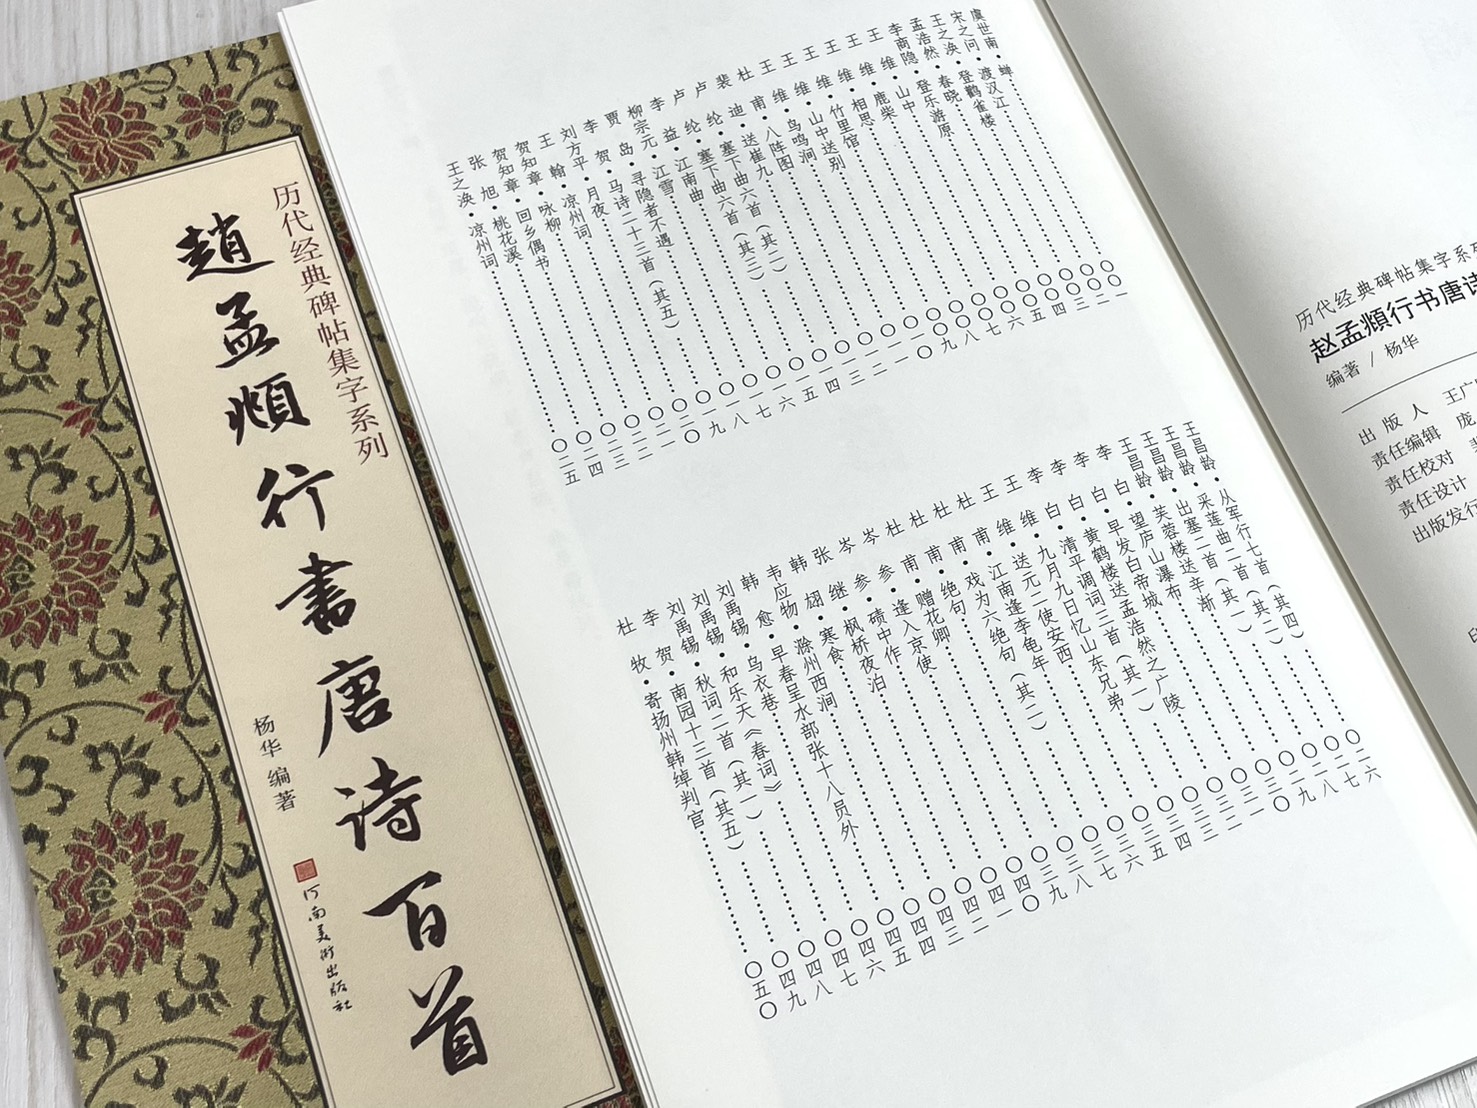 历代经典碑帖集字系列
趙孟頫行書唐诗百首
杨华 编著
河南美術出版社
虞世南•蝉……〇〇一
宋之问•渡汉江……〇〇二
王之涣•登鹳雀楼……〇〇三
孟浩然•春晓……〇〇四
李商隐•登乐游原……〇〇五
王维•山中……〇〇六
王维•鹿柴……〇〇七
王维•相思……〇〇八
王维•竹里馆……〇〇九
王维•山中送别……〇一〇
王维•鸟鸣涧……〇一一
杜甫•八阵图……〇一二
裴迪•送崔九……〇一三
卢纶•塞下曲六首（其二）……〇一四
卢纶•塞下曲六首（其三）……〇一五
李益•江南曲……〇一六
柳宗元•江雪……〇一七
贾岛•寻隐者不遇……〇一八
李贺•马诗二十三首（其五）……〇一九
刘方平•月夜……〇二〇
王翰•凉州词……〇二一
贺知章•咏柳……〇二二
贺知章•回乡偶书……〇二三
张旭•桃花溪……〇二四
王之涣•凉州词……〇二五
王昌龄•从军行七首（其四）……〇二六
王昌龄•采莲曲二首（其二）……〇二七
王昌龄•出塞二首（其一）……〇二八
王昌龄•芙蓉楼送辛渐……〇二九
李白•望庐山瀑布……〇三〇
李白•早发白帝城……〇三一
李白•黄鹤楼送孟浩然之广陵……〇三二
李白•清平调词三首（其一）……〇三三
王维•九月九日忆山东兄弟……〇三四
王维•送元二使安西……〇三五
杜甫•江南逢李龟年……〇三六
杜甫•戏为六绝句（其二）……〇三七
杜甫•绝句……〇三八
杜甫•赠花卿……〇三九
岑参•逢入京使……〇四〇
岑参•碛中作……〇四一
张继•枫桥夜泊……〇四二
韩翃•寒食……〇四三
韦应物•滁州西涧……〇四四
韩愈•早春呈水部张十八员外……〇四五
刘禹锡•乌衣巷……〇四六
刘禹锡•和乐天《春词》……〇四七
刘禹锡•秋词二首（其一）……〇四八
李贺•南园十三首（其五）……〇四九
杜牧•寄扬州韩绰判官……〇五〇
历代经典碑帖集字系列
赵孟頫行书唐诗
编著 / 杨华
出版人 王广
责任编辑 庞
责任校对
责任设计
出版发行